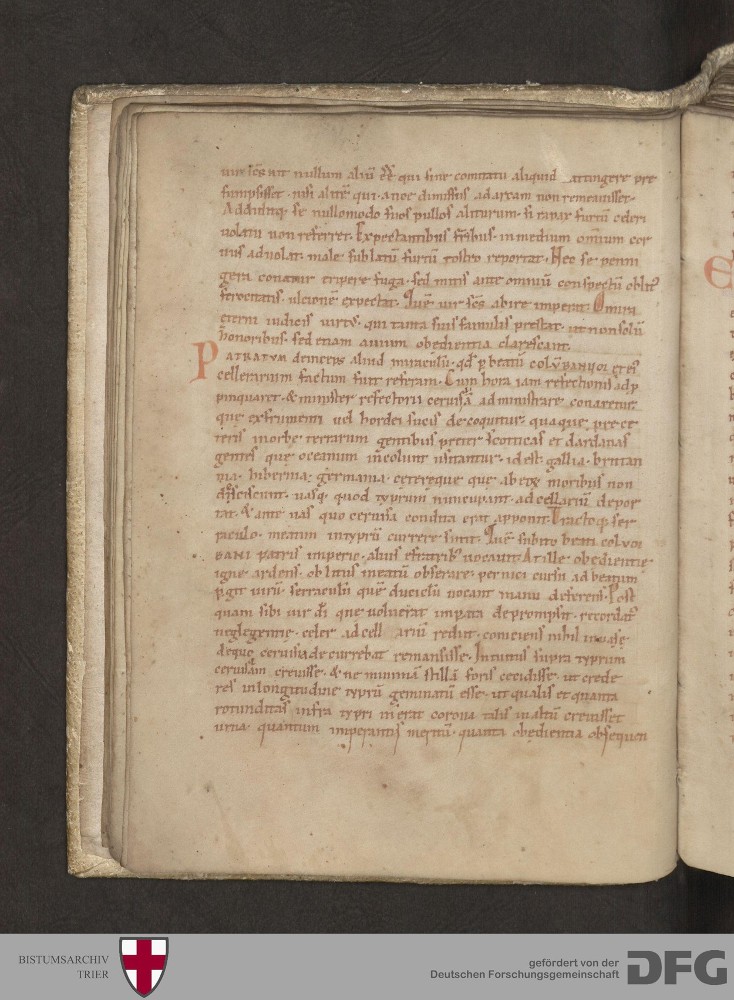 uir scs ait nullum aliu ee qui sine comitatu aliquid attingere pre
sumpsisset · nisi alite qui · a noe dimissus ad arcam non remeauisset ·
Addiditq; se nullomodo suos pullos aliturum · si rapax furtu celeri
uolatu non referret · Expectantibus fribus · in medium omnium cor
uus aduolat · male sublatu furtu rostro reportat · Nec se penni
geru conatur eripere fuga · sed mitis ante omniu conspectu oblit
ferocitatis · ulcione expectat · Que uir scs abire imperat · O mira
eterni iudicis uirt · qui tanta suis famulis prestat · ut non solu
honoribus · sed etiam auium obedientia clarescant ·
PATRATUM deinceps aliud miraculu · qd p beatu COLUBANU
cellerarium factum fuit referam · Cum hora iam refectionis adp
pinquaret · & minister refectorii ceruisa administrare conaretur
que ex frumenti uel hordei sucis decoquitur · quaque pre ce
teris in orbe terrarum gentibus preter scotticas et dardanas
gentes que oceanum incolunt usitantur · id est gallia · britan
nia · hibernia · germania · ceterequé que ab eo moribus non
disciscunt · uasq; quod typrum nuncupant · ad cellariu depor
tat · & ante uas quo ceruisa condita erat apponit · Tractoq; ser
raculo · meatum in typru currere sinit · Que subito beati COLU
BANI patris imperio · alius e fratrib uocauit · At ille obedientie
igne ardens · oblitus meatu obserare · pernici cursu ad beatum
pgit uiru · serraculu que duciclu uocant manu deferens · Post
quam sibi uir di que uoluerat imperata deprompsit · recordat
neglegentie · celer ad cellariu rediit · coniciens nihil in uase
de quo ceruisia decurrebat remansisse · Intuitus supra typrum
ceruisam creuisse · & ne minima stilla foris cecidisse · ut crede
res in longitudine typru geminatu esse · ut qualis et quanta
rotunditas infra typri inerat corona talis in altu creuisset
urna · quantum imperantis meritu · quanta obedientia obsequen
E
BISTUMSARCHIV
TRIER
gefördert von der
Deutschen Forschungsgemeinschaft
DFG